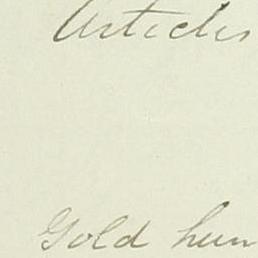 Articles
Gold hun